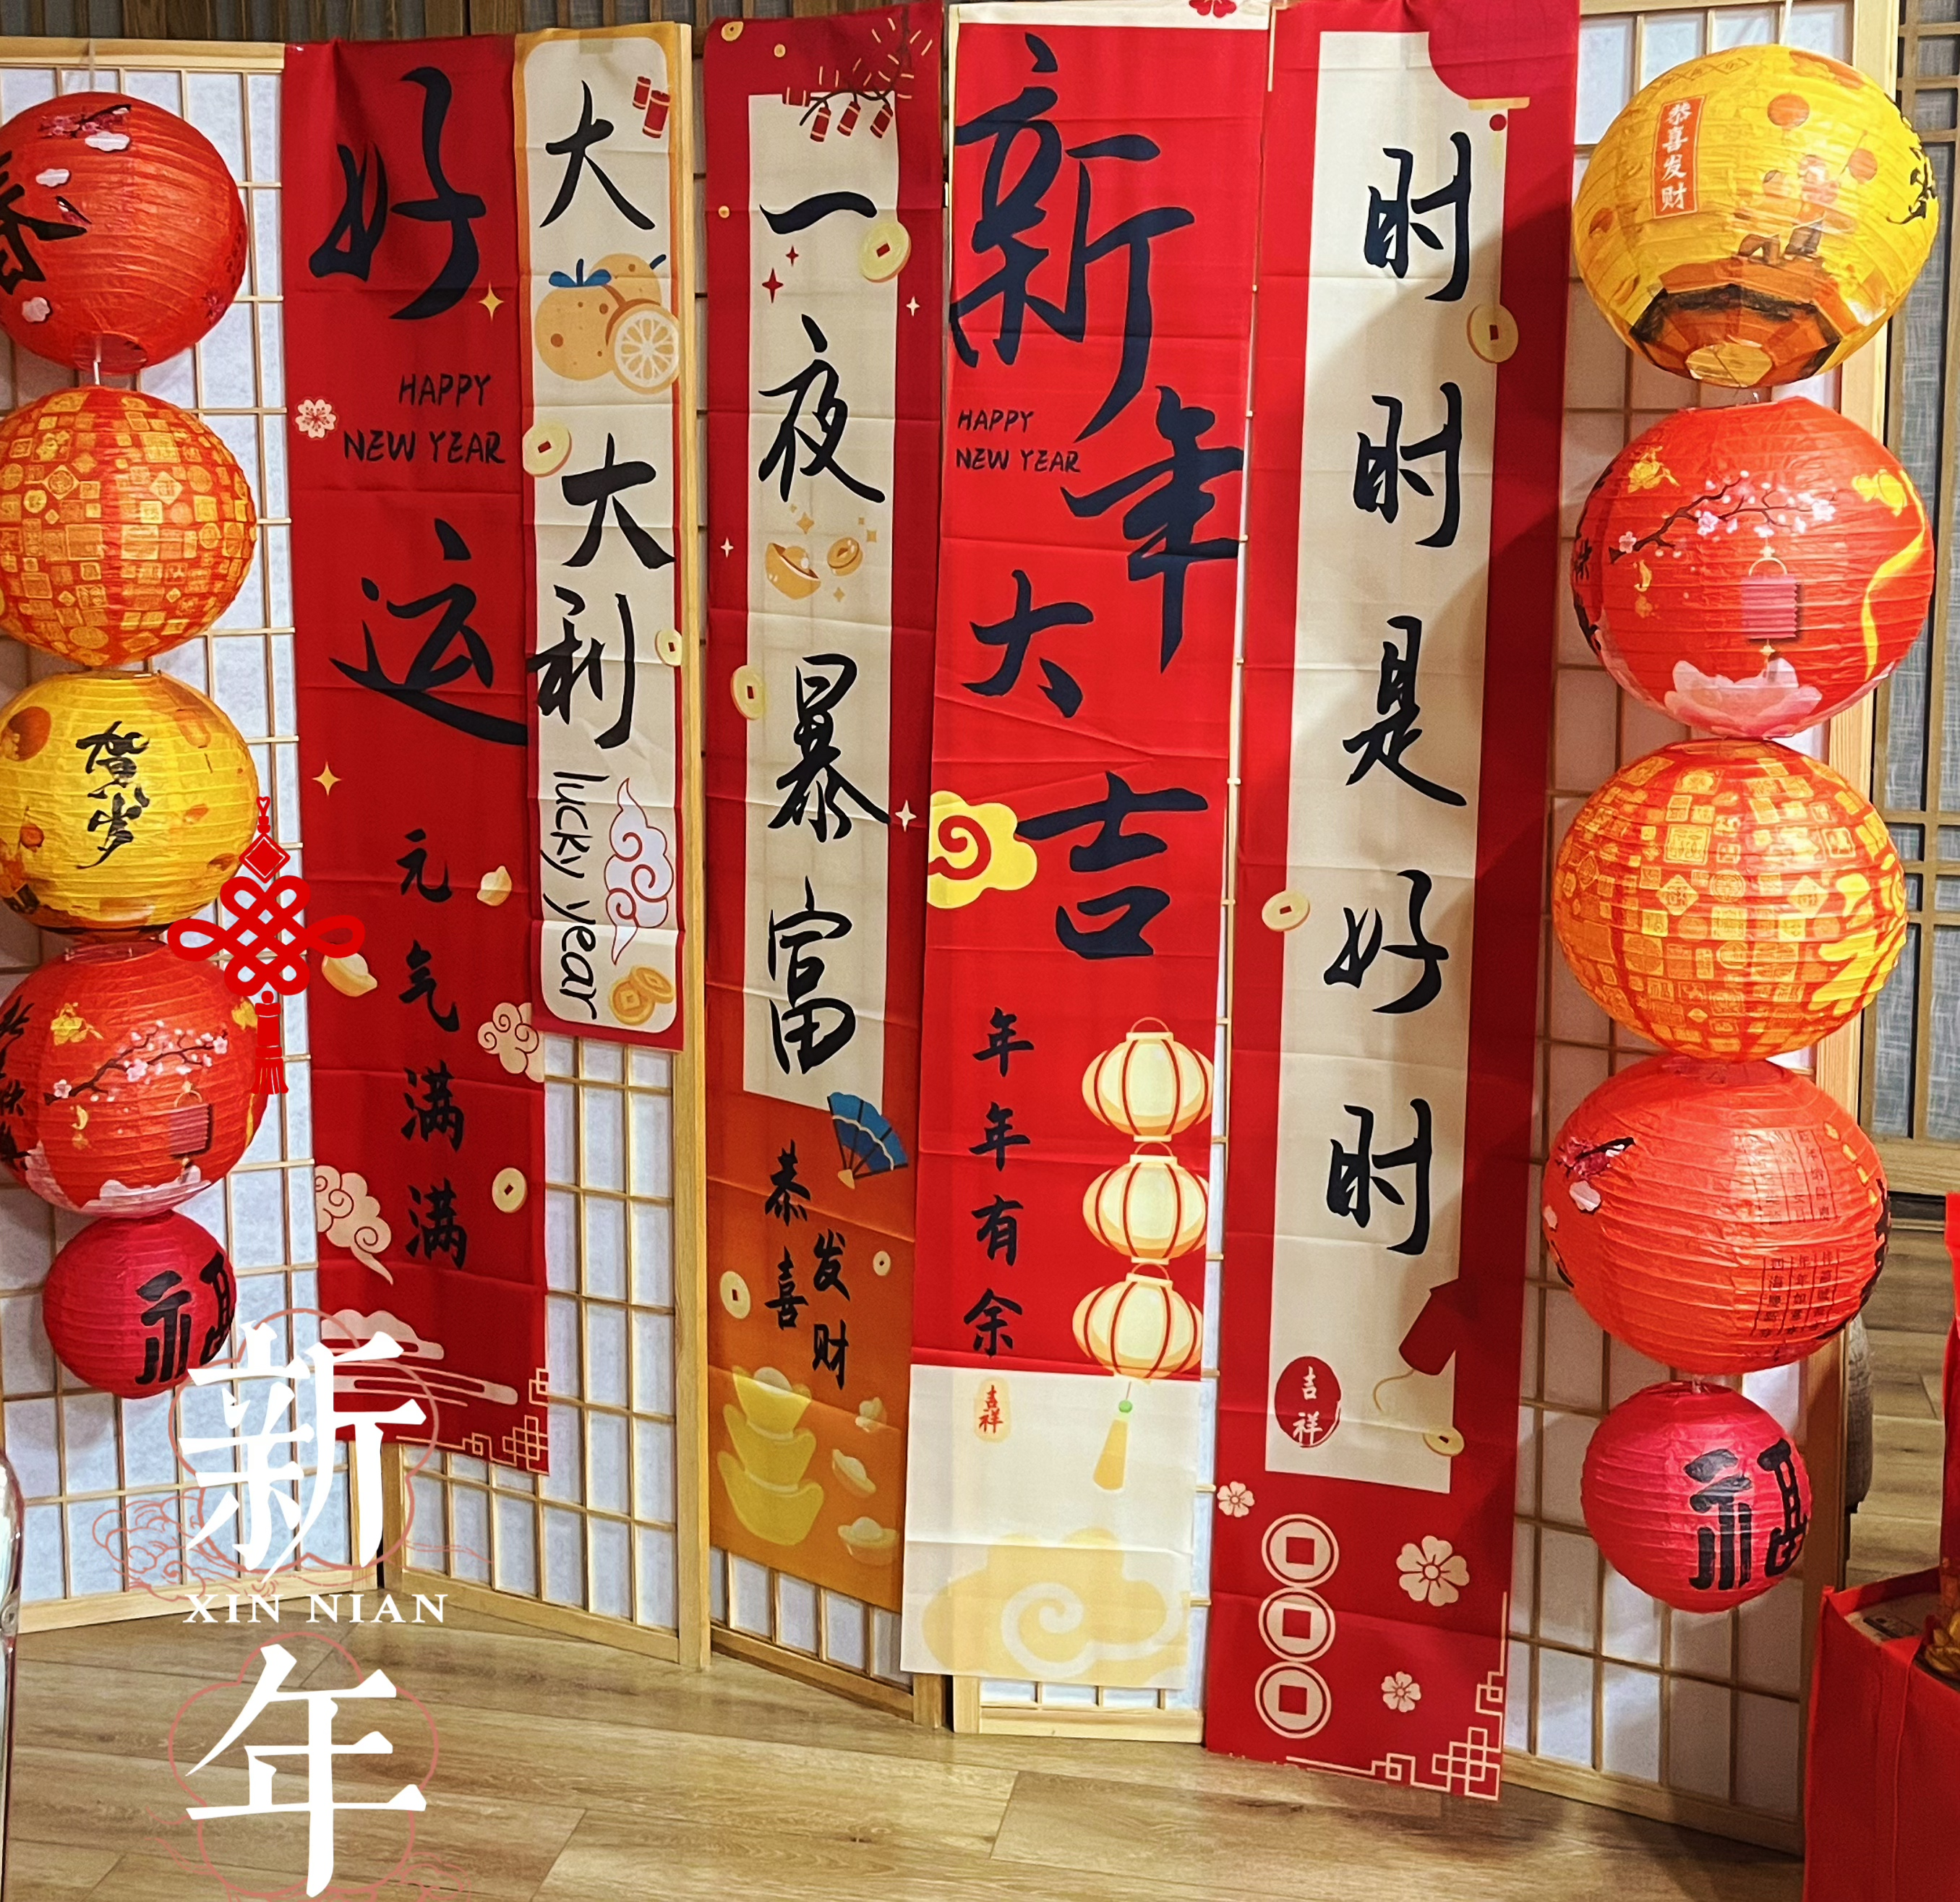 好运
HAPPY
NEW YEAR
元气满满
大大利
lucky year
一夜暴富
恭喜
发财
新年大吉
HAPPY
NEW YEAR
年年有余
吉祥
时时是好时
吉祥
春
贺岁
福
恭喜发财
福
新
XIN NIAN
年